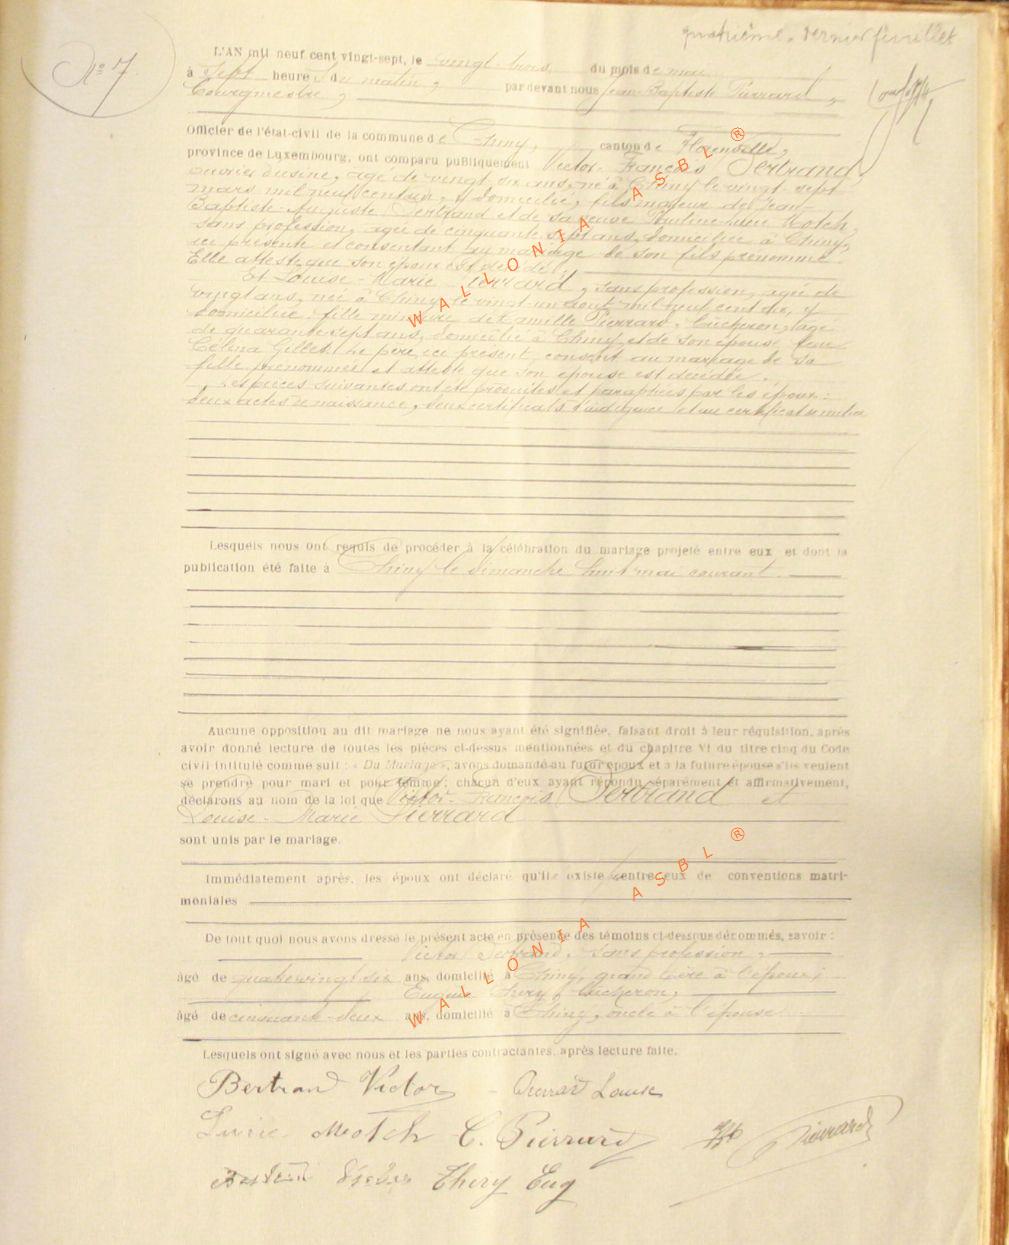 quatrième & dernier feuillet
N° 7
L'AN mil neuf cent vingt-sept, le vingt-trois du mois de mai
à sept heures du matin, par devant nous Jean-Baptiste Pierrard,
Bourgmestre,
Officier de l'état-civil de la commune de Chiny, canton de Florenville,
province de Luxembourg, ont comparu publiquement Victor-François Bertrand,
ouvrier d'usine, âgé de vingt six ans, né à Chiny le vingt-sept
mars mil neuf cent un, y domicilié, fils majeur de Jean-
Baptiste-Auguste Bertrand et de sa veuve Pauline-Lucie Motch,
sans profession, âgée de cinquante sept ans, domiciliée à Chiny,
ici présente et consentant au mariage de son fils prénommé.
Elle atteste que son époux est décédé.
Et Louise-Marie Pierrard, sans profession, âgée de
vingt ans, née à Chiny le vingt-un août mil neuf cent six, y
domiciliée, fille mineure de Camille Pierrard, bûcheron, âgé
de quarante sept ans, domicilié à Chiny, et de son épouse feue
Célina Gillet. Le père, ici présent, consent au mariage de sa
fille prénommée et atteste que son épouse est décédée.
Les pièces suivantes ont été produites et paraphées par les époux:
deux actes de naissance, deux certificats d'indigence et un certificat de milice
Lesquels nous ont requis de procéder à la célébration du mariage projeté entre eux et dont la
publication été faite à Chiny le dimanche huit mai courant.
Aucune opposition au dit mariage ne nous ayant été signifiée, faisant droit à leur réquisition, après
avoir donné lecture de toutes les pièces ci-dessus mentionnées et du chapitre VI du titre cinq du Code
civil intitulé comme suit : « Du Mariage », avons demandé au futur époux et à la future épouse s'ils veulent
se prendre pour mari et pour femme; chacun d'eux ayant répondu séparément et affirmativement,
déclarons au nom de la loi que Victor-François Bertrand et
Louise-Marie Pierrard
sont unis par le mariage.
Immédiatement après, les époux ont déclaré qu'il existe entre eux de conventions matri-
moniales
De tout quoi nous avons dressé le présent acte en présence des témoins ci-dessous dénommés, savoir :
Victor Bertrand, sans profession,
âgé de quatre-vingt six ans, domicilié à Chiny, grand'père à l'époux;
Eugène Thiry, bûcheron,
âgé de cinquante-deux ans, domicilié à Chiny, oncle à l'épouse
Lesquels ont signé avec nous et les parties contractantes, après lecture faite.
Bertrand Victor Pierrard Louise
Lucie Motch C. Pierrard JB Pierrard
Bertrand Victor Thiry Eug
WALLONIA ASBL ®
WALLONIA ASBL ®